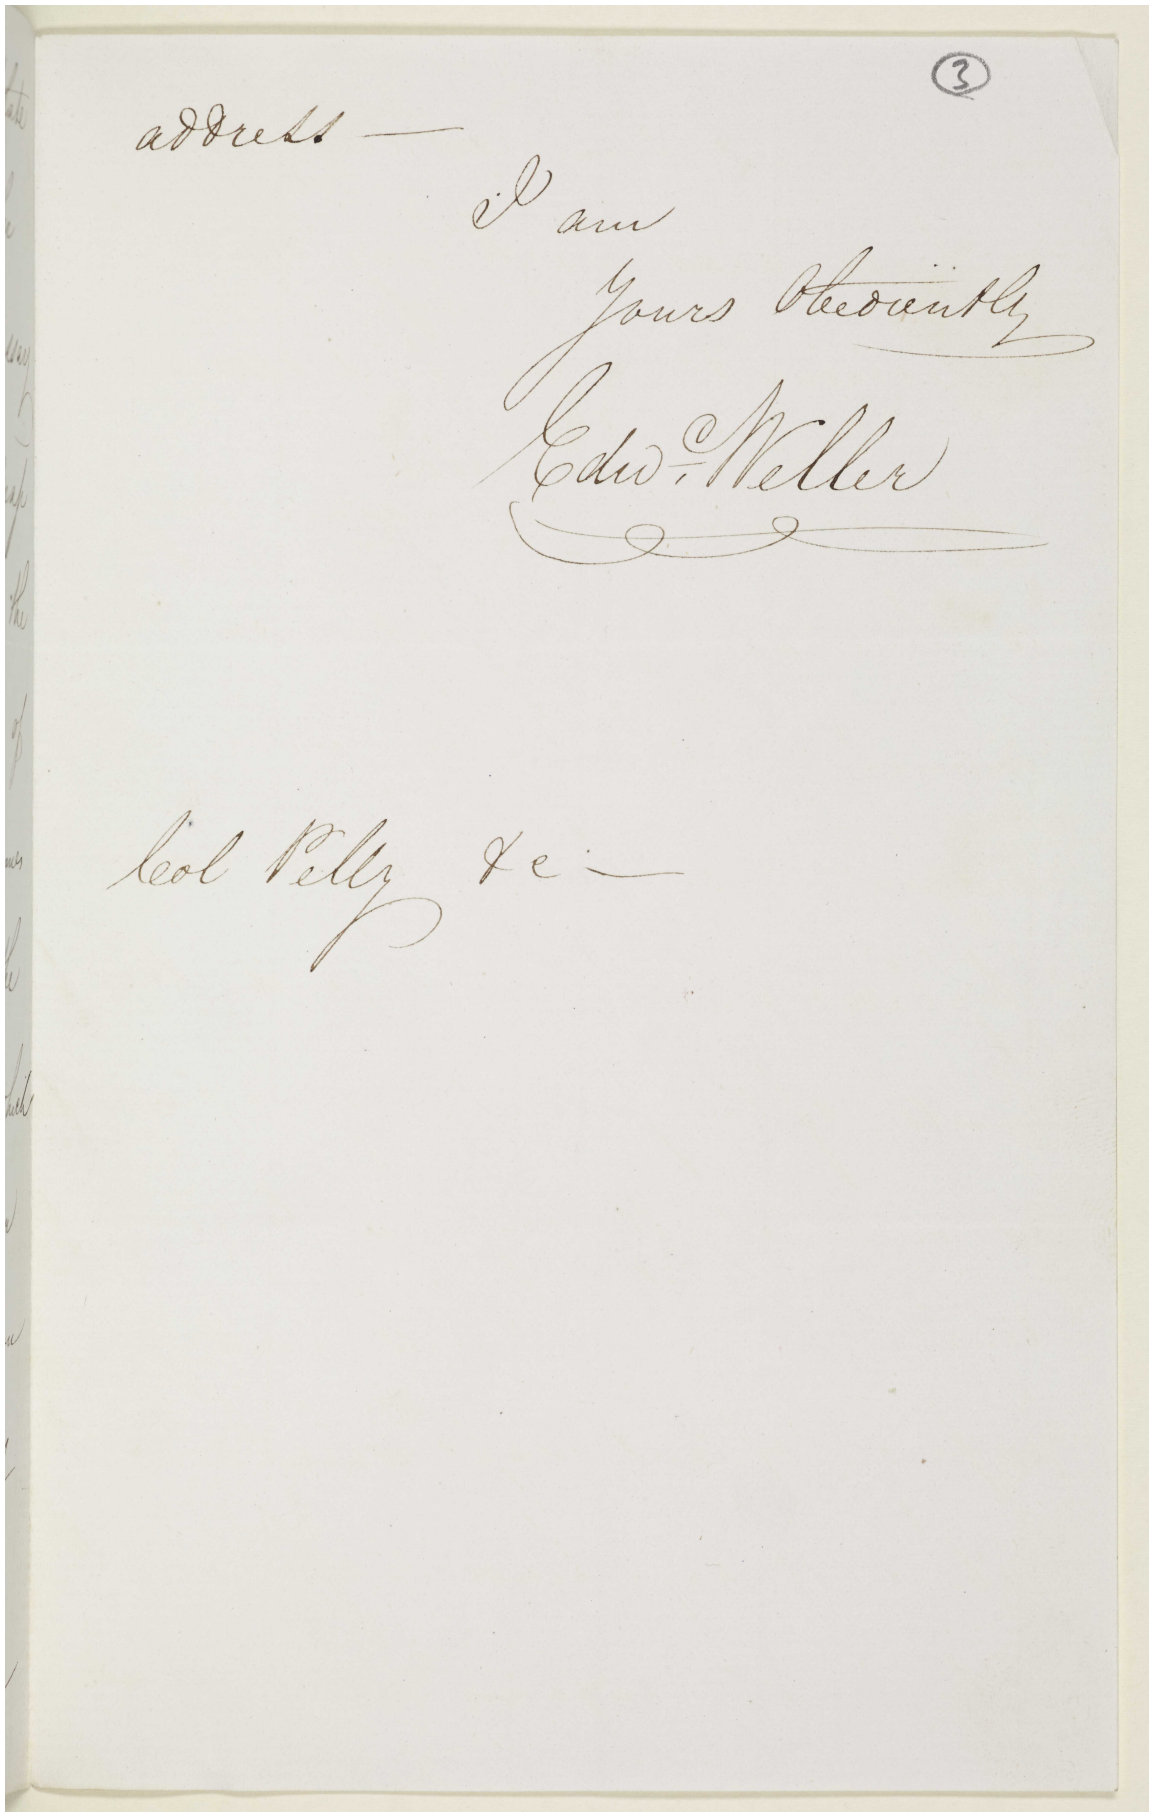 3
address —
I am
Yours Obediently
Edwd. Weller
Col Pelly &c —
the
of